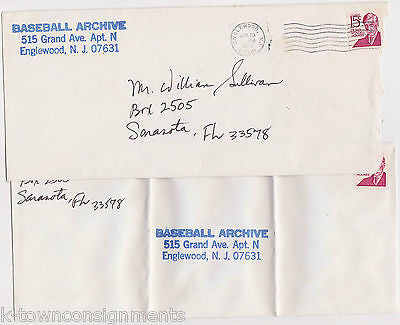 BASEBALL ARCHIVE
515 Grand Ave. Apt. N
Englewood, N. J. 07631
15c
Mr. William Sullivan
Box 2505
Sarasota, Fh 33578
Box 2505
Sarasota, Fh 33578
BASEBALL ARCHIVE
515 Grand Ave. Apt. N
Englewood, N. J. 07631
k-townconsignments